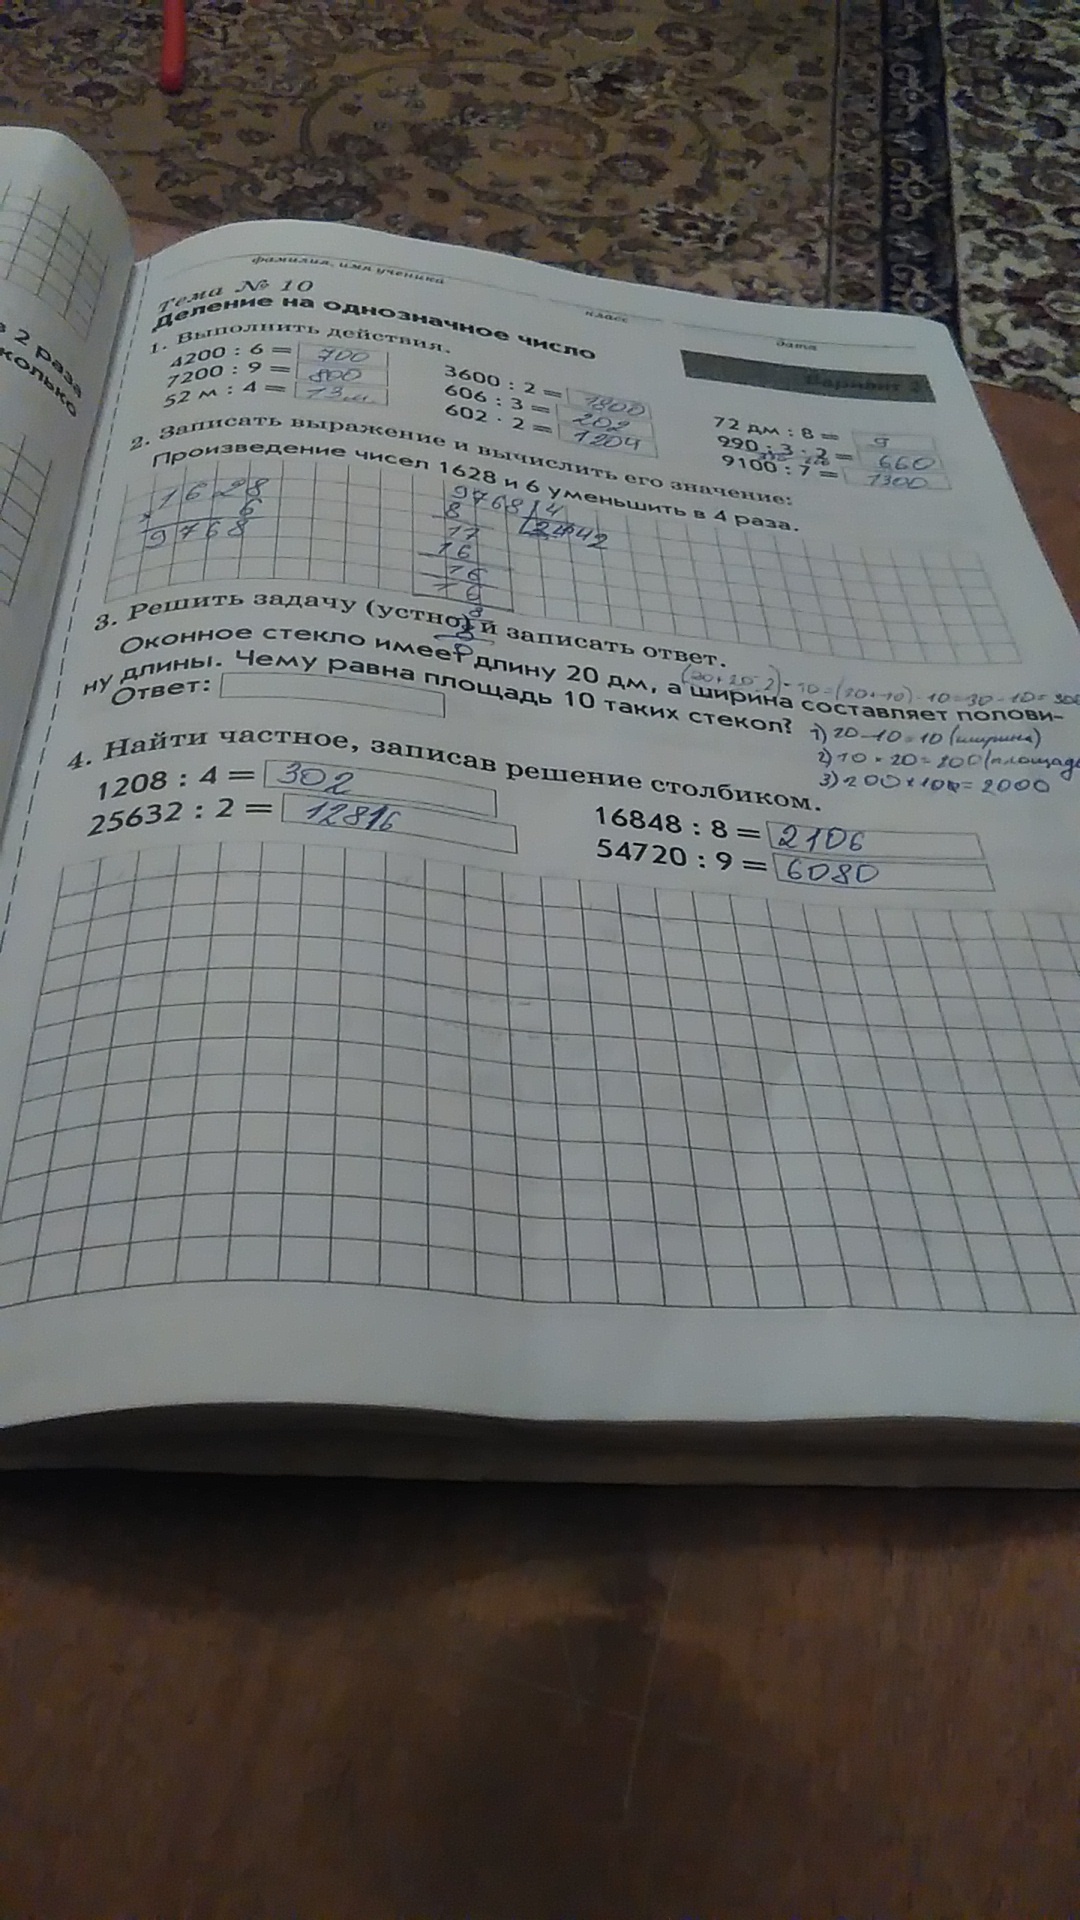 фамилия, имя ученика
класс
дата
Тема № 10
Деление на однозначное число
Вариант 2
1. Выполнить действия.
4200 : 6 = 700
3600 : 2 = 1800
72 дм : 8 = 9
7200 : 9 = 800
606 : 3 = 202
990 : 3 · 2 = 660
52 м : 4 = 13 м.
602 · 2 = 1204
9100 : 7 = 1300
2. Записать выражение и вычислить его значение:
Произведение чисел 1628 и 6 уменьшить в 4 раза.
1628
× 6
9768
9768 4
8
17
16
16
16
8
8
0
3. Решить задачу (устно) и записать ответ.
Оконное стекло имеет длину 20 дм, а ширина составляет полови-
ну длины. Чему равна площадь 10 таких стекол?
Ответ:
1) 20-10=10 (ширина)
2) 10 · 20 = 200 (площадь
= 2000
4. Найти частное, записав решение столбиком.
1208 : 4 = 302
16848 : 8 = 2106
25632 : 2 = 12816
54720 : 9 = 6080
2 раза
колько